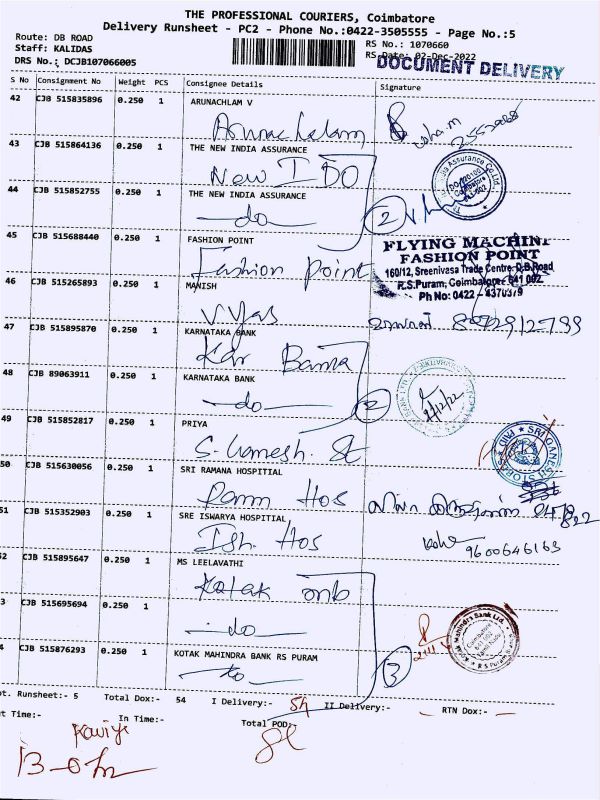 THE PROFESSIONAL COURIERS, Coimbatore
Delivery Runsheet - PC2 - Phone No.:0422-3505555 - Page No.:5
Route: DB ROAD
Staff: KALIDAS
DRS No.: DCJB107066005
RS No.: 1070660
RS Date: 02-Dec-2022
DOCUMENT DELIVERY
S No Consignment No Weight PCS Consignee Details Signature
42 CJB 515835896 0.250 1 ARUNACHLAM V
Arunachalam
43 CJB 515864136 0.250 1 THE NEW INDIA ASSURANCE
New I
44 CJB 515852755 0.250 1 THE NEW INDIA ASSURANCE
do 2
45 CJB 515688440 0.250 1 FASHION POINT
Fashion Point
FLYING MACHINE
FASHION POINT
160/12, Sreenivasa Trade Centre, D.B.Road
R.S.Puram, Coimbatore - 641 002.
Ph No: 0422 - 4370379
46 CJB 515265893 0.250 1 MANISH
vyas
47 CJB 515895870 0.250 1 KARNATAKA BANK
Kar Bank
48 CJB 89063911 0.250 1 KARNATAKA BANK
do 2
2/12/22
49 CJB 515852817 0.250 1 PRIYA
S. Ganesh. St
SRI GANESH STORES
50 CJB 515630056 0.250 1 SRI RAMANA HOSPITIAL
Ramn Hos
51 CJB 515352903 0.250 1 SRE ISWARYA HOSPITIAL
Ish. Hos
9600646163
52 CJB 515895647 0.250 1 MS LEELAVATHI
Kotak
3 CJB 515695694 0.250 1
do
4 CJB 515876293 0.250 1 KOTAK MAHINDRA BANK RS PURAM
do 3
Kotak Mahindra Bank Ltd.
Coimbatore
R S Puram
ot. Runsheet:- 5 Total Dox:- 54 I Delivery:- 54 II Delivery:- RTN Dox:-
ut Time:- In Time:- Total POD:-